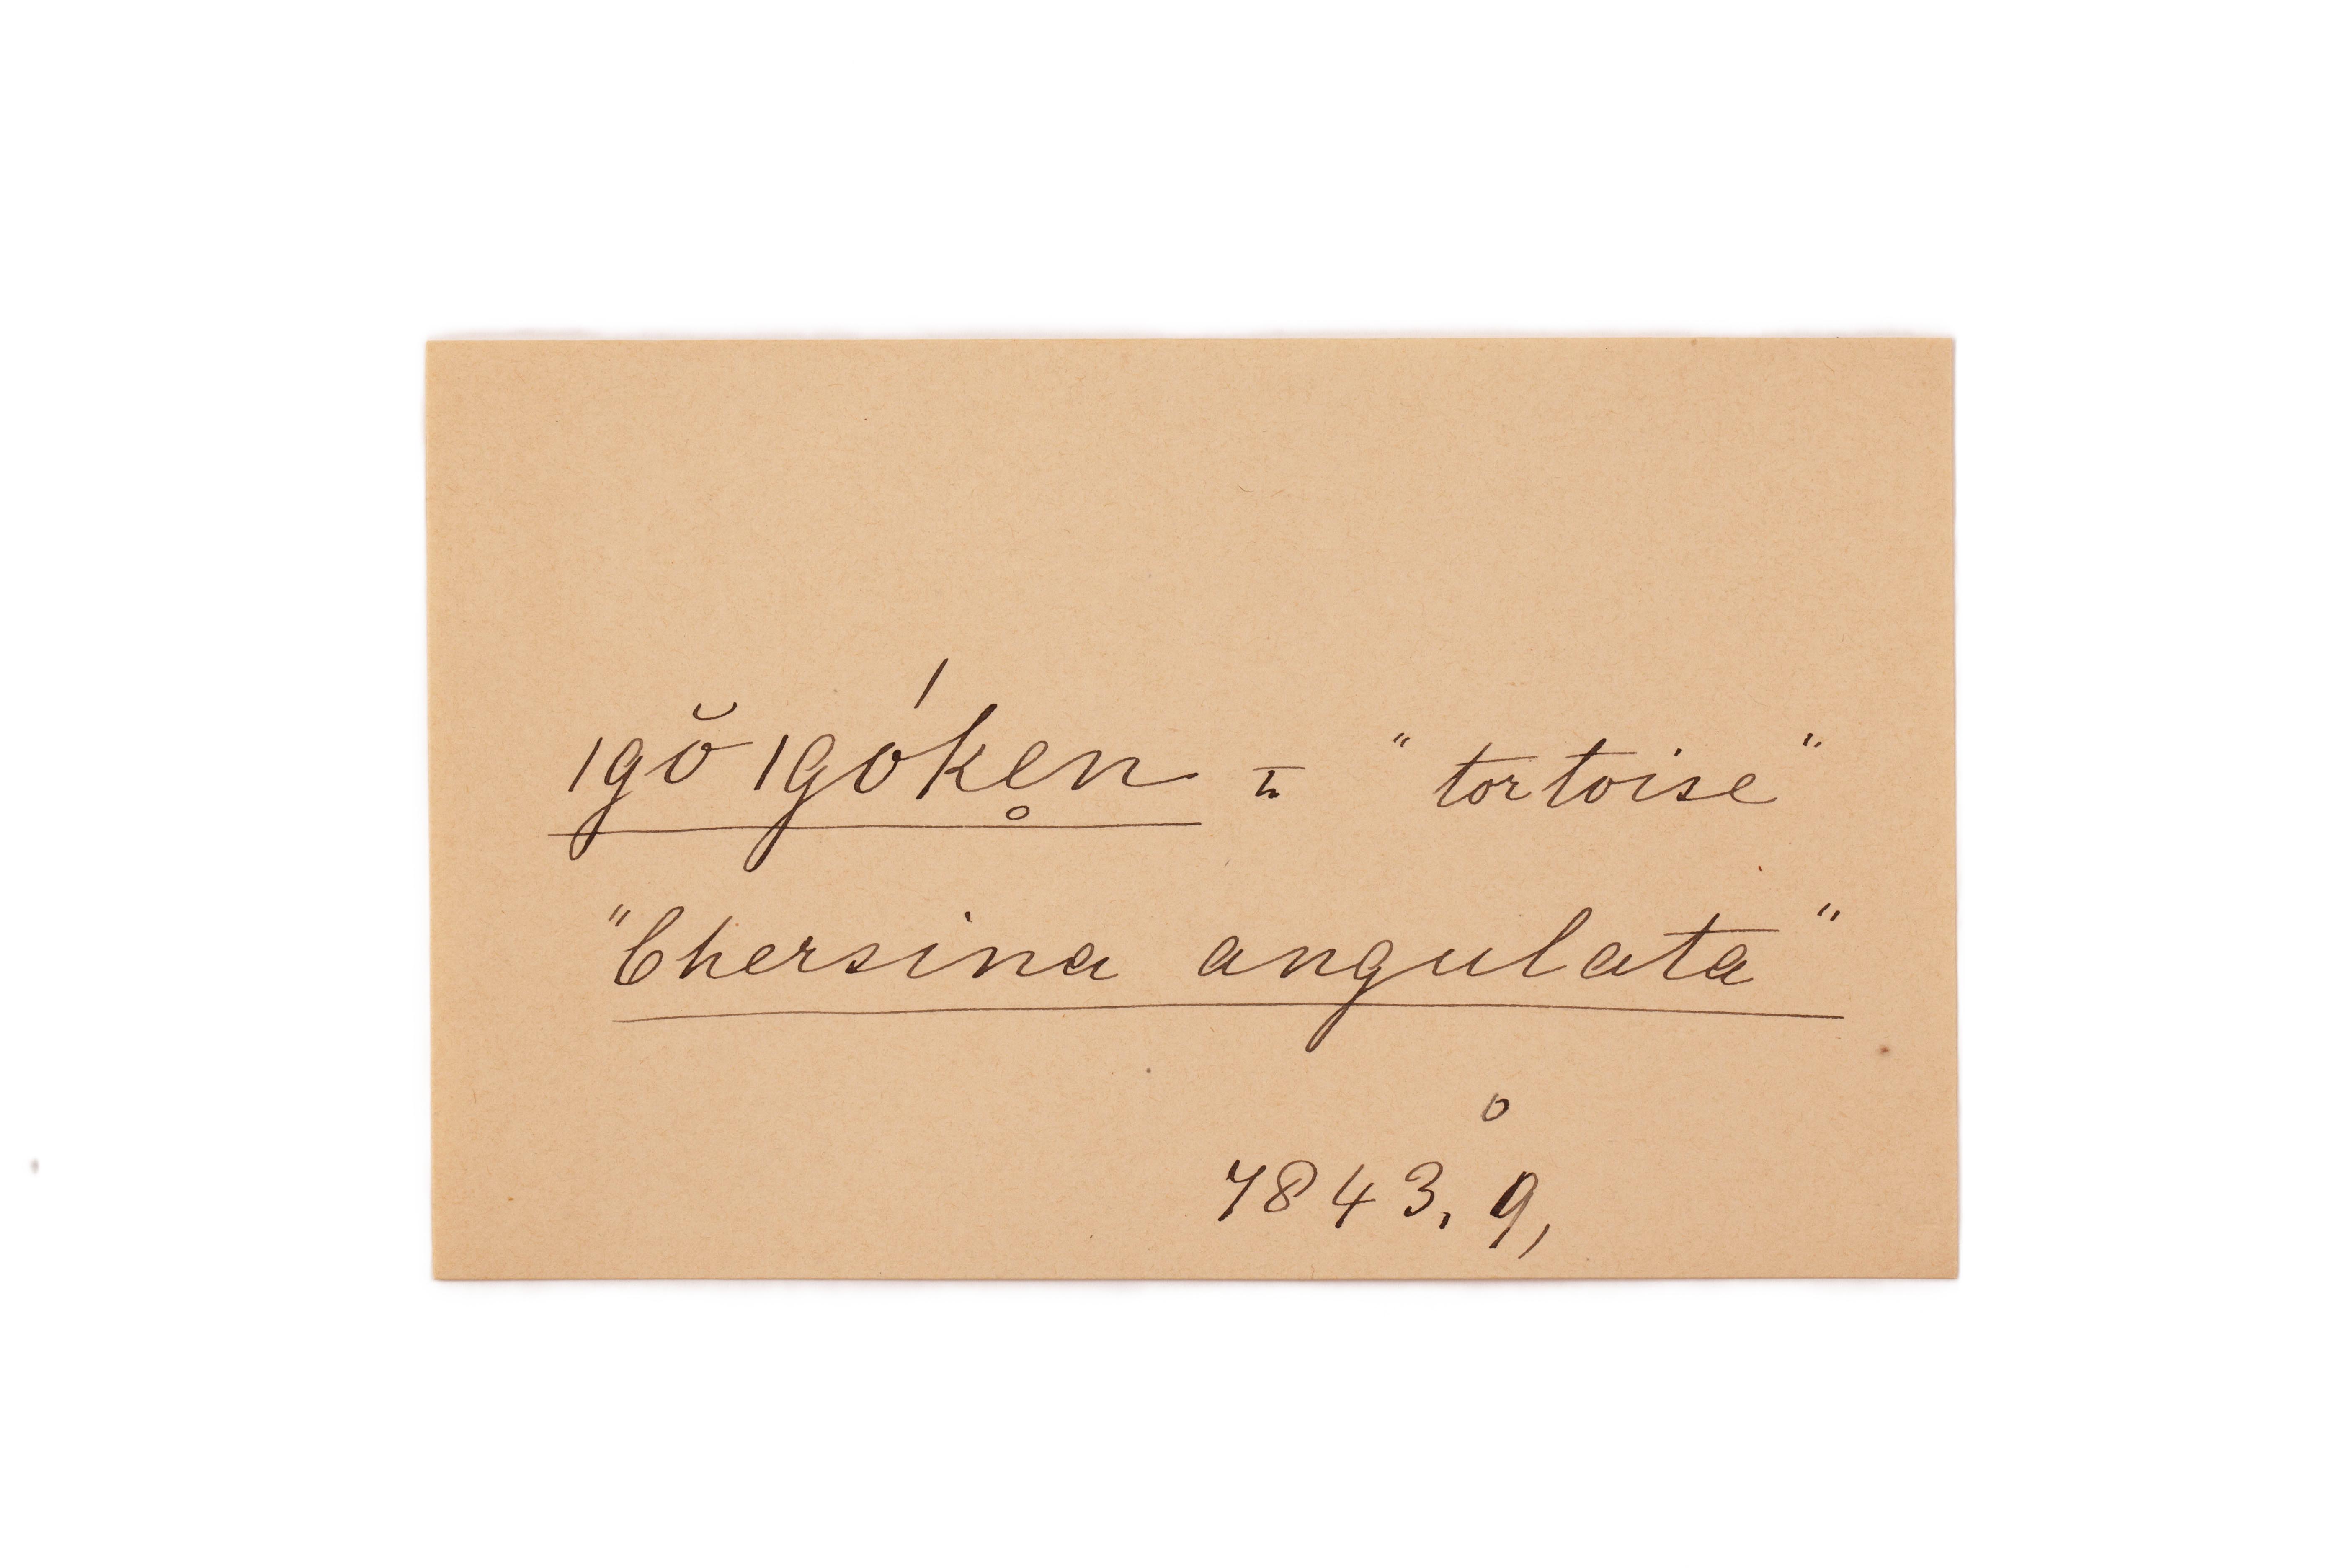 ǀgŏ ǀgóke̥n = "tortoise"
"Chersina angulata"
o
7843. 9,